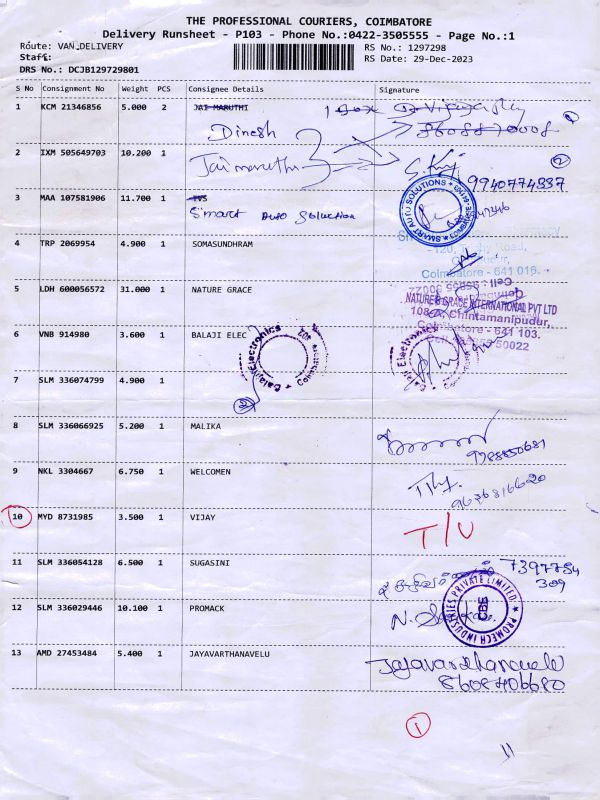 THE PROFESSIONAL COURIERS, COIMBATORE
Delivery Runsheet - P103 - Phone No.:0422-3505555 - Page No.:1
Route: VAN,DELIVERY RS No.: 1297298
Staff: RS Date: 29-Dec-2023
DRS No.: DCJB129729801
S No Consignment No Weight PCS Consignee Details Signature
1 KCM 21346856 5.000 2 JAI MARUTHI
Dinesh
2 IXM 505649703 10.200 1 Jai maruthi
9940774337
3 MAA 107581906 11.700 1 TVS
Smart Auto Solution
SMART AUTO SOLUTIONS
4 TRP 2069954 4.900 1 SOMASUNDHRAM
Coimbatore - 641 016.
5 LDH 600056572 31.000 1 NATURE GRACE
NATURE'S GRACE INTERNATIONAL PVT LTD
Chintamanipudur,
Coimbatore - 641 103.
6 VNB 914980 3.600 1 BALAJI ELEC
Balaji Electronics
Balaji Electronics
7 SLM 336074799 4.900 1
2
8 SLM 336066925 5.200 1 MALIKA
9 NKL 3304667 6.750 1 WELCOMEN
10 MYD 8731985 3.500 1 VIJAY T/U
11 SLM 336054128 6.500 1 SUGASINI 7397754
309
12 SLM 336029446 10.100 1 PROMACK
PROMECH INDUSTRIES PRIVATE LIMITED
CBE
13 AMD 27453484 5.400 1 JAYAVARTHANAVELU Jayavardhanavelu
8608406680
1
11